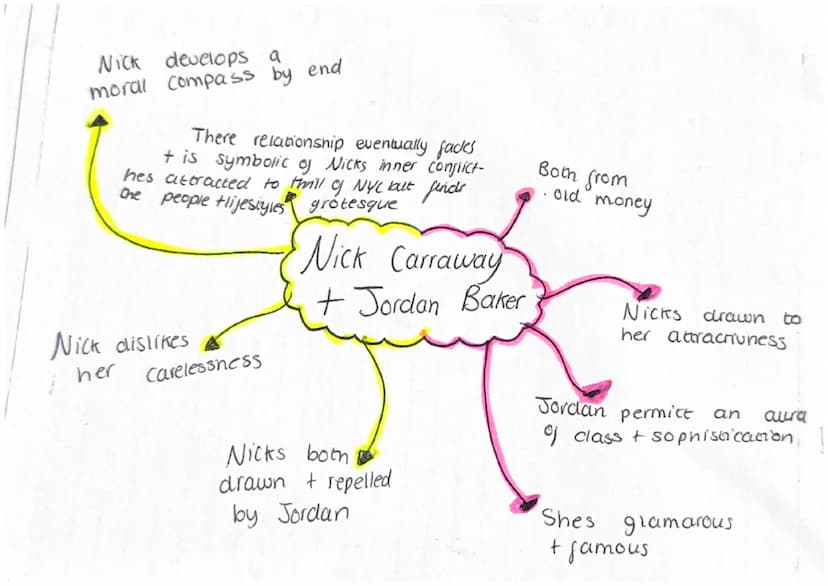 Nick develops a
moral compass by end
There relationship eventually fades
+ is symbolic of Nicks inner conflict-
hes attracted to thrill of NYC but finds
the people + lifestyles grotesque
Both from
old money
Nick Carraway
+ Jordan Baker
Nicks drawn to
her attractivness
Nick dislikes
her carelessness
Jordan permits an aura
of class + sophistication
Nicks both
drawn + repelled
by Jordan
Shes glamarous
+ famous